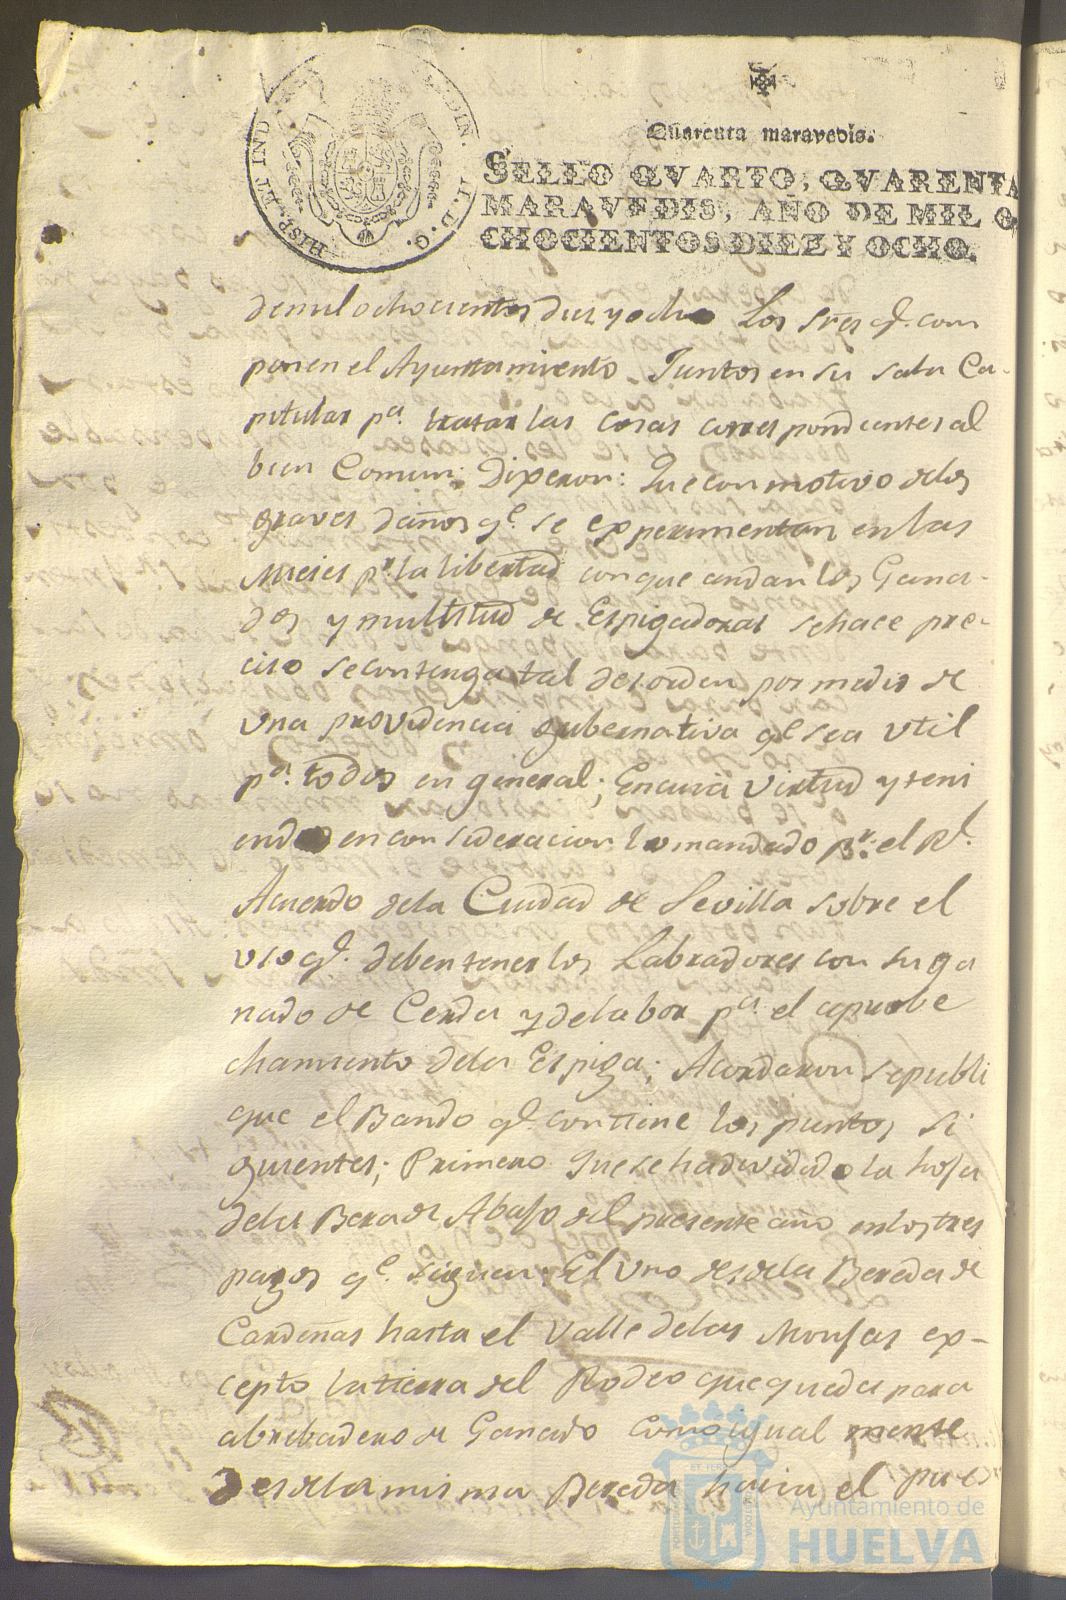 HISP. ET IND
DIN.
D. G.
Quarenta maravedis.
SELLO QVARTO, QVARENTA
MARAVEDIS, AÑO DE MIL O
CHOCIENTOS DIEZ Y OCHO.
demil ochocientos diez y ocho Los Sres. q.e com
ponen el Ayuntamiento Juntos en su sala Ca-
pitular p.a tratar las cosas correspondientes al
bien Comun; Dixeron: Que con motivo de los
graves daños q.e se experimentan en las
Mieses p.r la libertad con que andan los Gana-
dos y multitud de Espigadoras se hace pre-
ciso se contenga tal desorden por medio de
una providencia gubernativa q.e sea util
p.a todos en general; En cuia virtud y teni
endo en consideracion lo mandado p.r el R.l
Acuerdo dela Ciudad de Sevilla sobre el
uso q.e deben tener los Labradores con su ga
nado de Cerda y de labor p.a el aprobe
chamiento dela Espiga; Acordaron se publi
que el Bando q.e contiene los puntos si
guientes; Primero Que se ha dividido la hoja
dela Bera de Abajo del presente año en los tres
pagos q.e siguen; El Uno desde la Bereda de
Cardeñas hasta el Valle delas Monjas ex-
cepto la tierra del Rodeo que queda para
abrebadero de Ganado Como igualmente
Desde la misma Bereda hacia el
Ayuntamiento de
HUELVA